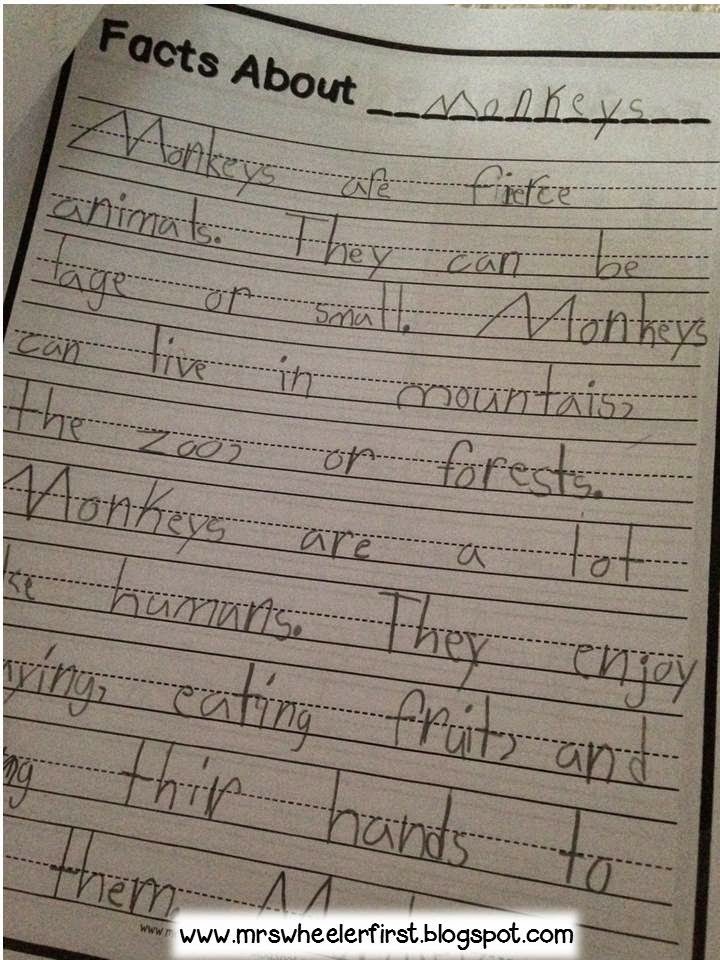 Facts About Monkeys
Monkeys are fierce
animals. They can be
lage or small. Monkeys
can live in mountais,
the zoo, or forests.
Monkeys are a lot
humans. They enjoy
eating fruit, and
thir hands to
them.
www.mrswheelerfirst.blogspot.com